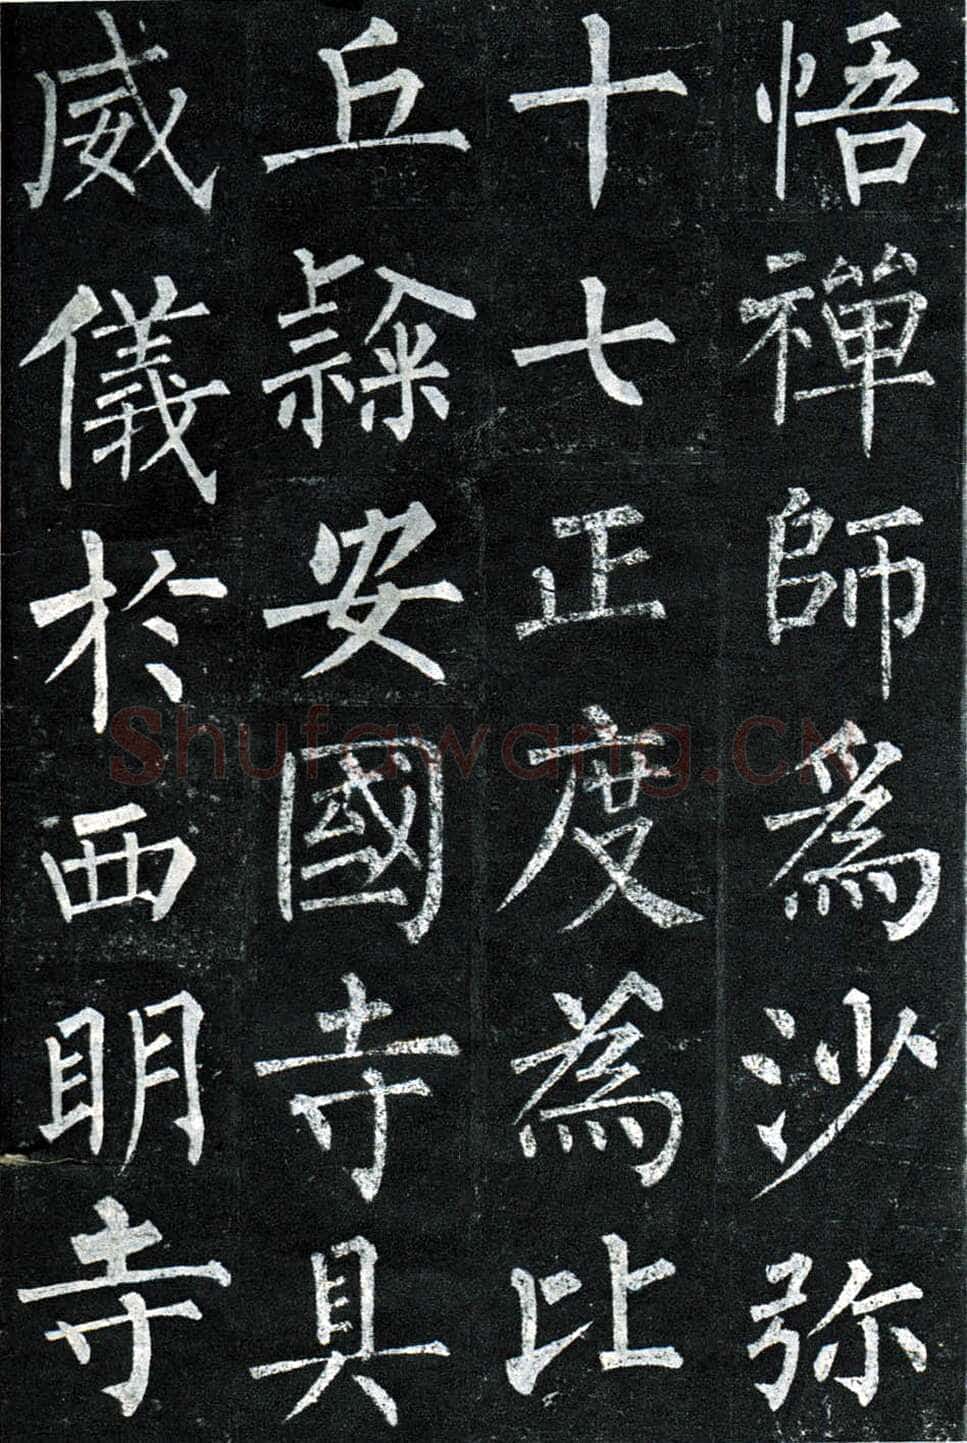 悟禪師為沙弥
十七正度為比
丘隸安國寺具
威儀於西明寺
Shufawang.CN